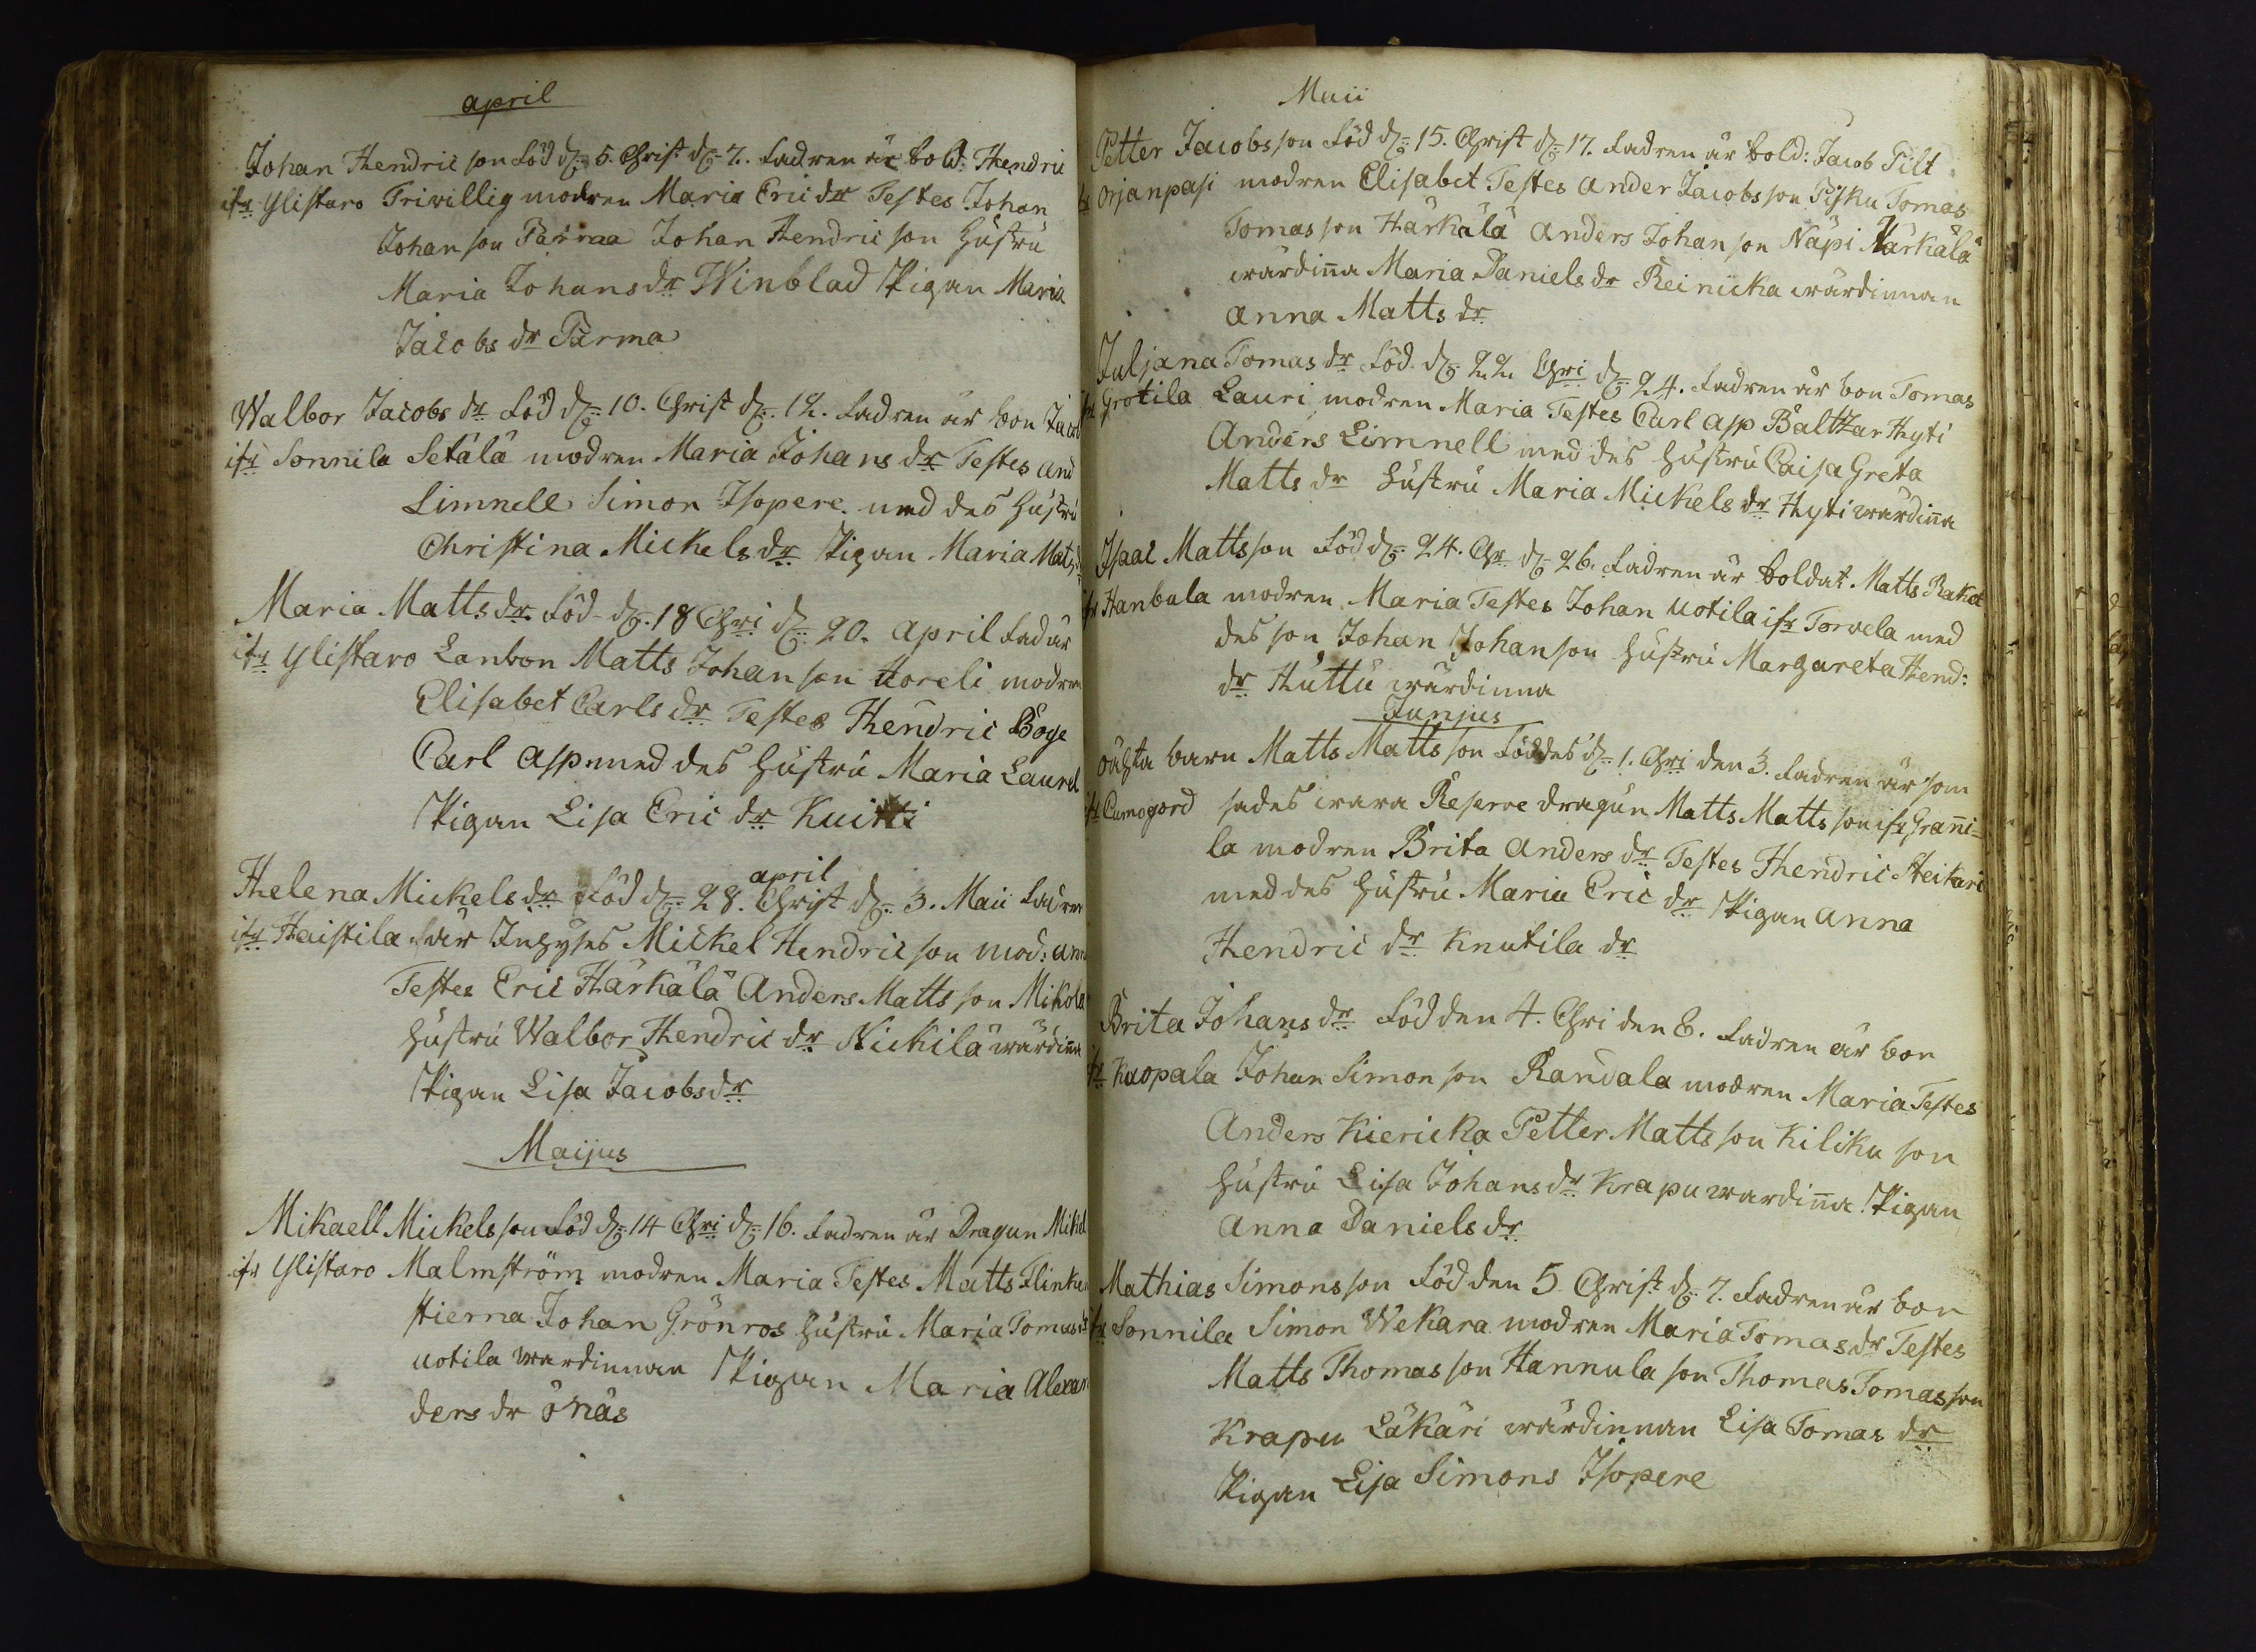 april
Johan Hendric son Föd d. 5. Christ d. 7. Fadren är bold: Hendric
ifr Ylistaro Triwillig modren Maria Eric dr Testes Johan
Johan son Parmaa Johan Hendric son Hustru
Maria Johans dr Winblad Pigan Maria
Jacobs dr Parma
Walbor Jacobs dr Föd d. 10. Christ d. 12. Fadren är bon Jacob
ifr Sonnila Setälä modren Maria Johans dr Testes And
Limnell Simon Isopere med des Hustru
Christina Mickels dr Pigan Maria Mats
Maria Matts dr Föd d. 18 Chri d. 20. April Fad är
ifr Ylistaro Lanbon Matts Johan son Uoreli modren
Elisabet Carls dr Testes Hendric Boge
Carl Asp med des Hustru Maria Laurel
Pigan Lisa Eric dr Kuitti
april
Helena Mickels dr Föd d. 28. Christ d. 3. Maii Fadren
ifr Haistila är Inhyses Mickel Hendric son mod: Ann
Testes Eric Härkälä Anders Matts son Mikola
Hustru Walbor Hendric dr Nickilä wärdinna
Pigan Lisa Jacobs dr
Maijus
Mikaell Mickels son Föd d. 14 Chri d. 16. Fadren är Dragun Mikel
ifr Ylistaro Malmström modren Maria Testes Matts Flinken
stierna Johan Grönros Hustru Maria Tomas dr
Uotila wardinnan Pigan Maria Alexan
ders dr önäs
Maii
Petter Jacobs son Föd d. 15. Christ d. 17. Fadren är bold: Jacob Pilt
Orjanpasi modren Elisabet Testes Ander Jacobs son Pisku Tomas
Tomas son Härkälä Anders Johan son Näpi Härkälä
wärdinna Maria Daniels dr Reinicka wärdinnan
Anna Matts dr
Juljana Tomas dr Föd d. 22 Chri d. 24. Fadren är bon Tomas
Grotila Lauri modren Maria Testes Carl Asp Baltzar Hyti
Anders Limnell med des Hustru Caisa Greta
Matts dr Hustru Maria Mickels dr Hyti wärdinna
Isaac Matts son Föd d. 24. Chr d. 26. Fadren är boldat Matts Raket
ifr Hanbula modren Maria Testes Johan Uotila ifr Torvela med
des son Johan Johan son Hustru Margareta Hend:
dr Huttu wärdinna
Junjus
oächta barn Matts Matts son Föddes d. 1. Chri den 3. Fadren är som
ifr Cumogord sades wara Reserve dragun Matts Matts son ifr Granni-
la modren Brita Anders dr Testes Hendric Heikari
med des Hustru Maria Eric dr Pigan Anna
Hendric dr Knutila dr
Brita Johans dr Föd den 4. Chri den 8. Fadren är bon
ifr Kaopala Johan Simon son Randala modren Maria Testes
Anders Kiericka Petter Matts son Kiliku son
Hustru Lisa Johans dr Krapu wardinna Pigan
Anna Daniels dr
Mathias Simons son Föd den 5 Christ d. 7. Fadren är bon
ifr Sonnila Simon Wekara modren Maria Tomas dr Testes
Matts Thomas son Hannula son Thomas Tomas son
Krapu Läkäri wärdinnan Lisa Tomas dr
Pigan Lisa Simons Isopere